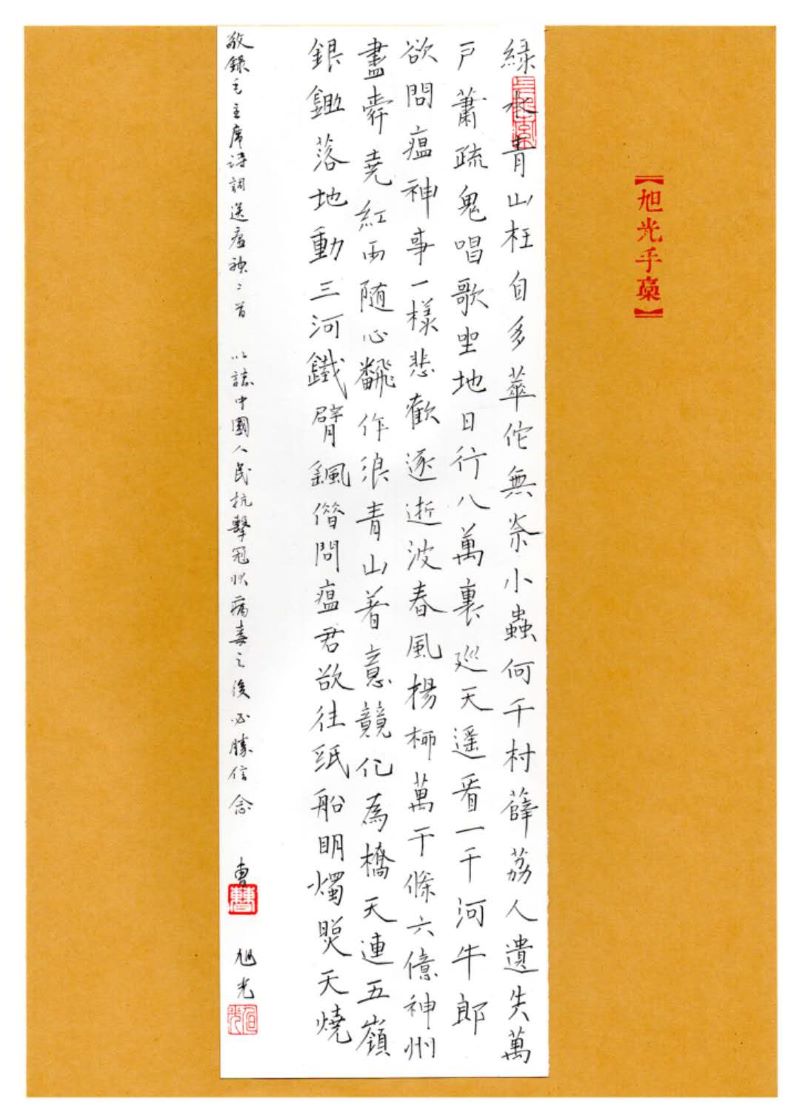 【旭光手稾】
綠水青山枉自多華佗無奈小蟲何千村薜荔人遺失萬
戶蕭疏鬼唱歌坐地日行八萬裏巡天遥看一千河牛郎
欲問瘟神事一樣悲歡逐逝波春風楊柳萬千條六億神州
盡舜堯紅雨随心飜作浪青山着意競化為橋天連五嶺
銀鋤落地動三河鐵臂颻借問瘟君欲往紙船明燭照天燒
敬錄毛主席詩詞送瘟神二首 以誌中國人民抗擊冠狀病毒之後必勝信念 曹 旭光
曹
旭光